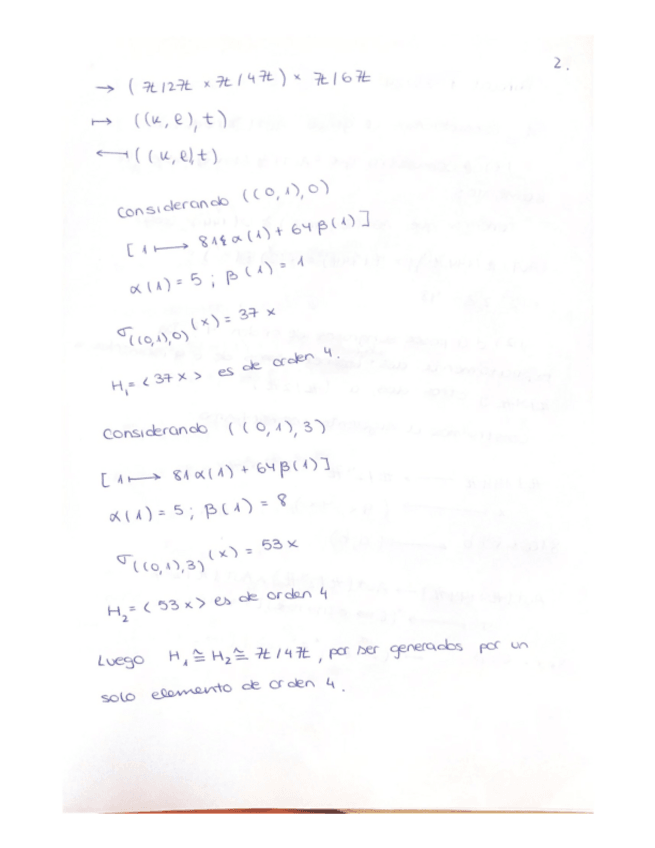 2.
→ (ℤ/2ℤ × ℤ/4ℤ) × ℤ/6ℤ
↦ ((k, l), t)
⟻ ((k, l) t)
Considerando ((0, 1), 0)
[1 ⟼ 81 α(1) + 64 β(1)]
α(1) = 5 ; β(1) = 1
σ((0,1),0) (x) = 37 x
H₁ = < 37 x > es de orden 4.
Considerando ((0, 1), 3)
[1 ⟼ 81 α(1) + 64 β(1)]
α(1) = 5 ; β(1) = 8
σ((0,1),3) (x) = 53 x
H₂ = < 53 x > es de orden 4
Luego H₁ ≅ H₂ ≅ ℤ/4ℤ, por ser generados por un
solo elemento de orden 4.